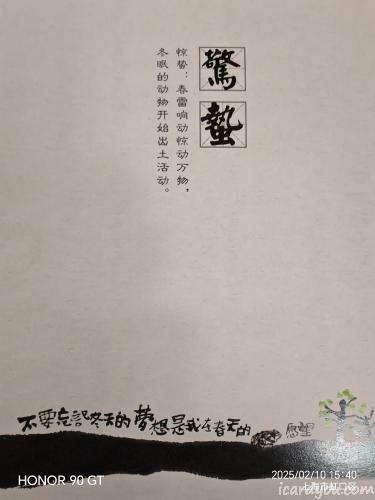 驚蟄
惊蛰：春雷响动惊动万物，
冬眠的动物开始出土活动。
不要忘记冬天的夢想是我在春天的愿望
HONOR 90 GT
2025/02/10 15:40
上海市虹口区
icaradyou.com